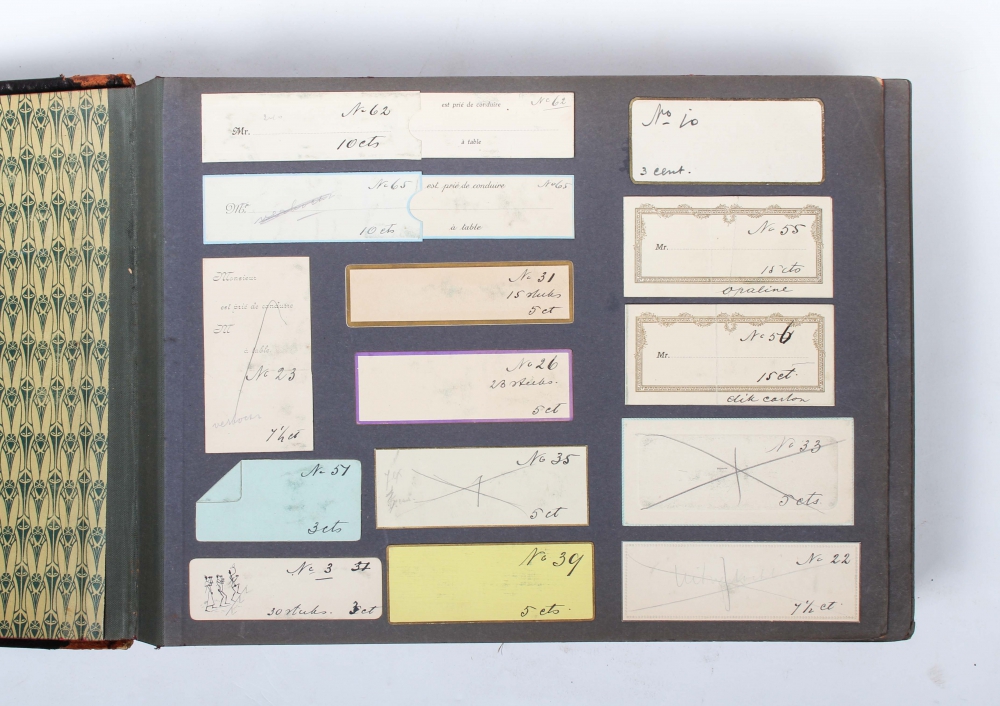 No 62
Mr.
10 cts
est prié de conduire No 62
à table
No 65
Mr.
10 cts
est prié de conduire No 65
à table
Monsieur
est prié de conduire
M
à table
No 23
verboren
7½ ct
No 31
15 stuks
5 ct
No 26
23 stuks.
5 ct
No 51
3 cts
No 35
5 ct
No 3 31
30 stuks. 3 ct
No 39
5 cts.
No 10
3 cent.
No 55
Mr.
15 cts
opaline
No 56
Mr.
15 ct.
dik carton
No 33
5 cts.
No 22
7½ ct.